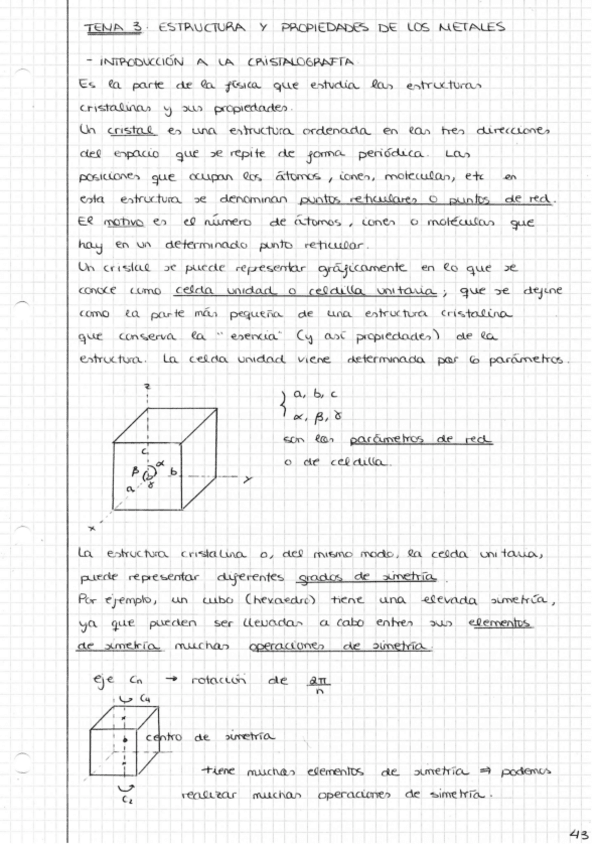 TEMA 3. ESTRUCTURA Y PROPIEDADES DE LOS METALES
- INTRODUCCIÓN A LA CRISTALOGRAFÍA
Es la parte de la física que estudia las estructuras
cristalinas y sus propiedades.
Un cristal es una estructura ordenada en las tres direcciones
del espacio que se repite de forma periódica. Las
posiciones que ocupan los átomos, iones, moléculas, etc en
esta estructura se denominan puntos reticulares o puntos de red.
El motivo es el número de átomos, iones o moléculas que
hay en un determinado punto reticular.
Un cristal se puede representar gráficamente en lo que se
conoce como celda unidad o celdilla unitaria, que se define
como la parte más pequeña de una estructura cristalina
que conserva la "esencia" (y así propiedades) de la
estructura. La celda unidad viene determinada por 6 parámetros.
z
a, b, c
α, β, γ
son los parámetros de red
o de celdilla.
c
β α b
a γ
y
x
La estructura cristalina o, del mismo modo, la celda unitaria,
puede representar diferentes grados de simetría.
Por ejemplo, un cubo (hexaedro) tiene una elevada simetría,
ya que pueden ser llevadas a cabo entres sus elementos
de simetría muchas operaciones de simetría.
eje Cn → rotación de 2π/n
C4
centro de simetría
tiene muchos elementos de simetría ⇒ podemos
realizar muchas operaciones de simetría.
C2
43